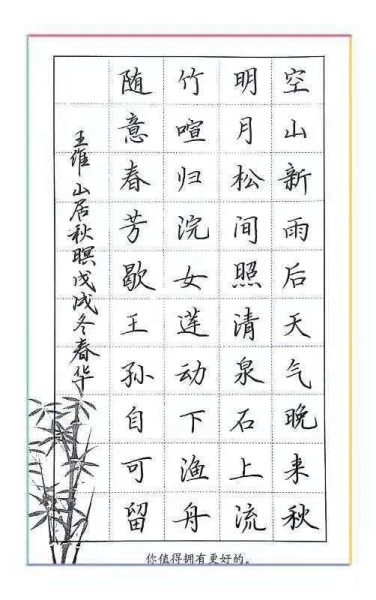 空山新雨后天气晚来秋
明月松间照清泉石上流
竹喧归浣女莲动下渔舟
随意春芳歇王孙自可留
王维山居秋暝戊戌冬春华
你值得拥有更好的。